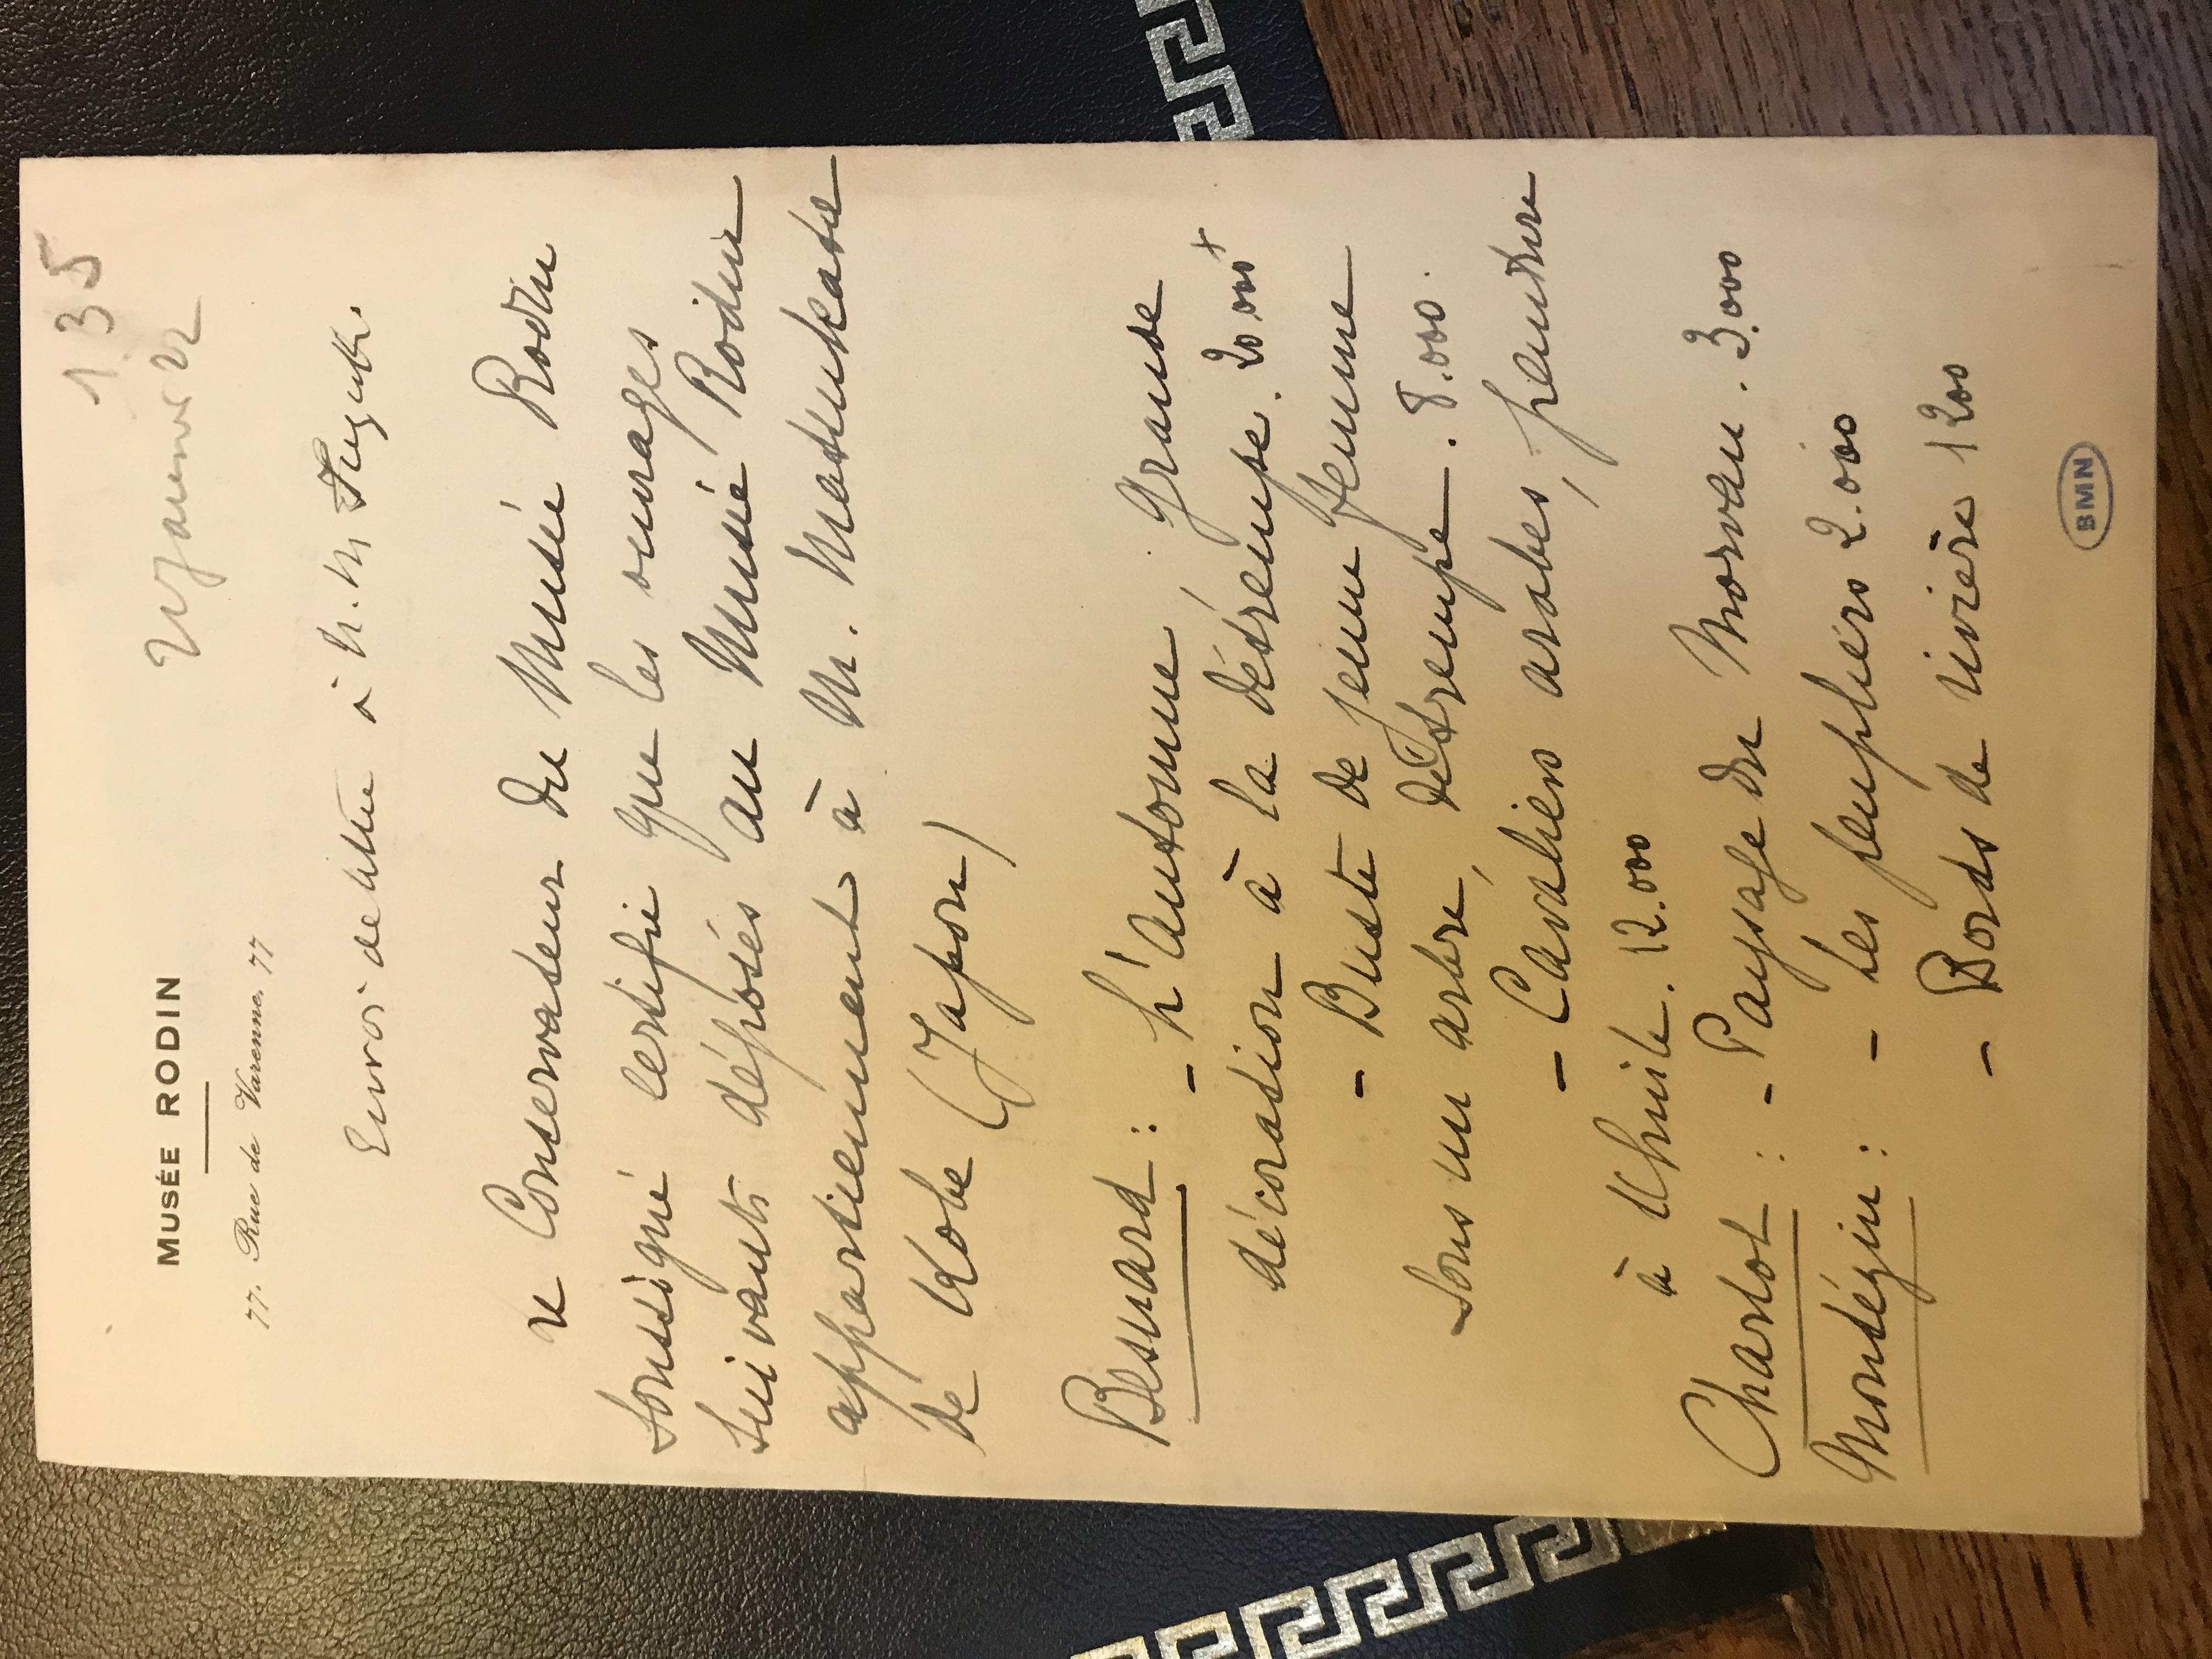 135
MUSÉE RODIN
77, Rue de Varenne, 77
janvier 22
Envoi de à M. M
le Conservateur du Musée Rodin
soussigné certifie que les ouvrages
suivants déposés au Musée Rodin
appartiennent à M. Matsukata
de Kobe (Japon)
Besnard : - L'Automne, grande
décoration à la détrempe. 20.000 +
- Buste de jeune femme
sous un arbre, détrempe. 8.000.
- Cavaliers arabes, peinture
à l'huile. 12.000
Charlot : - Paysage du Morvan. 3.000
Montézin : - Les peupliers 2.000
- Bords de rivière 1200
BMN